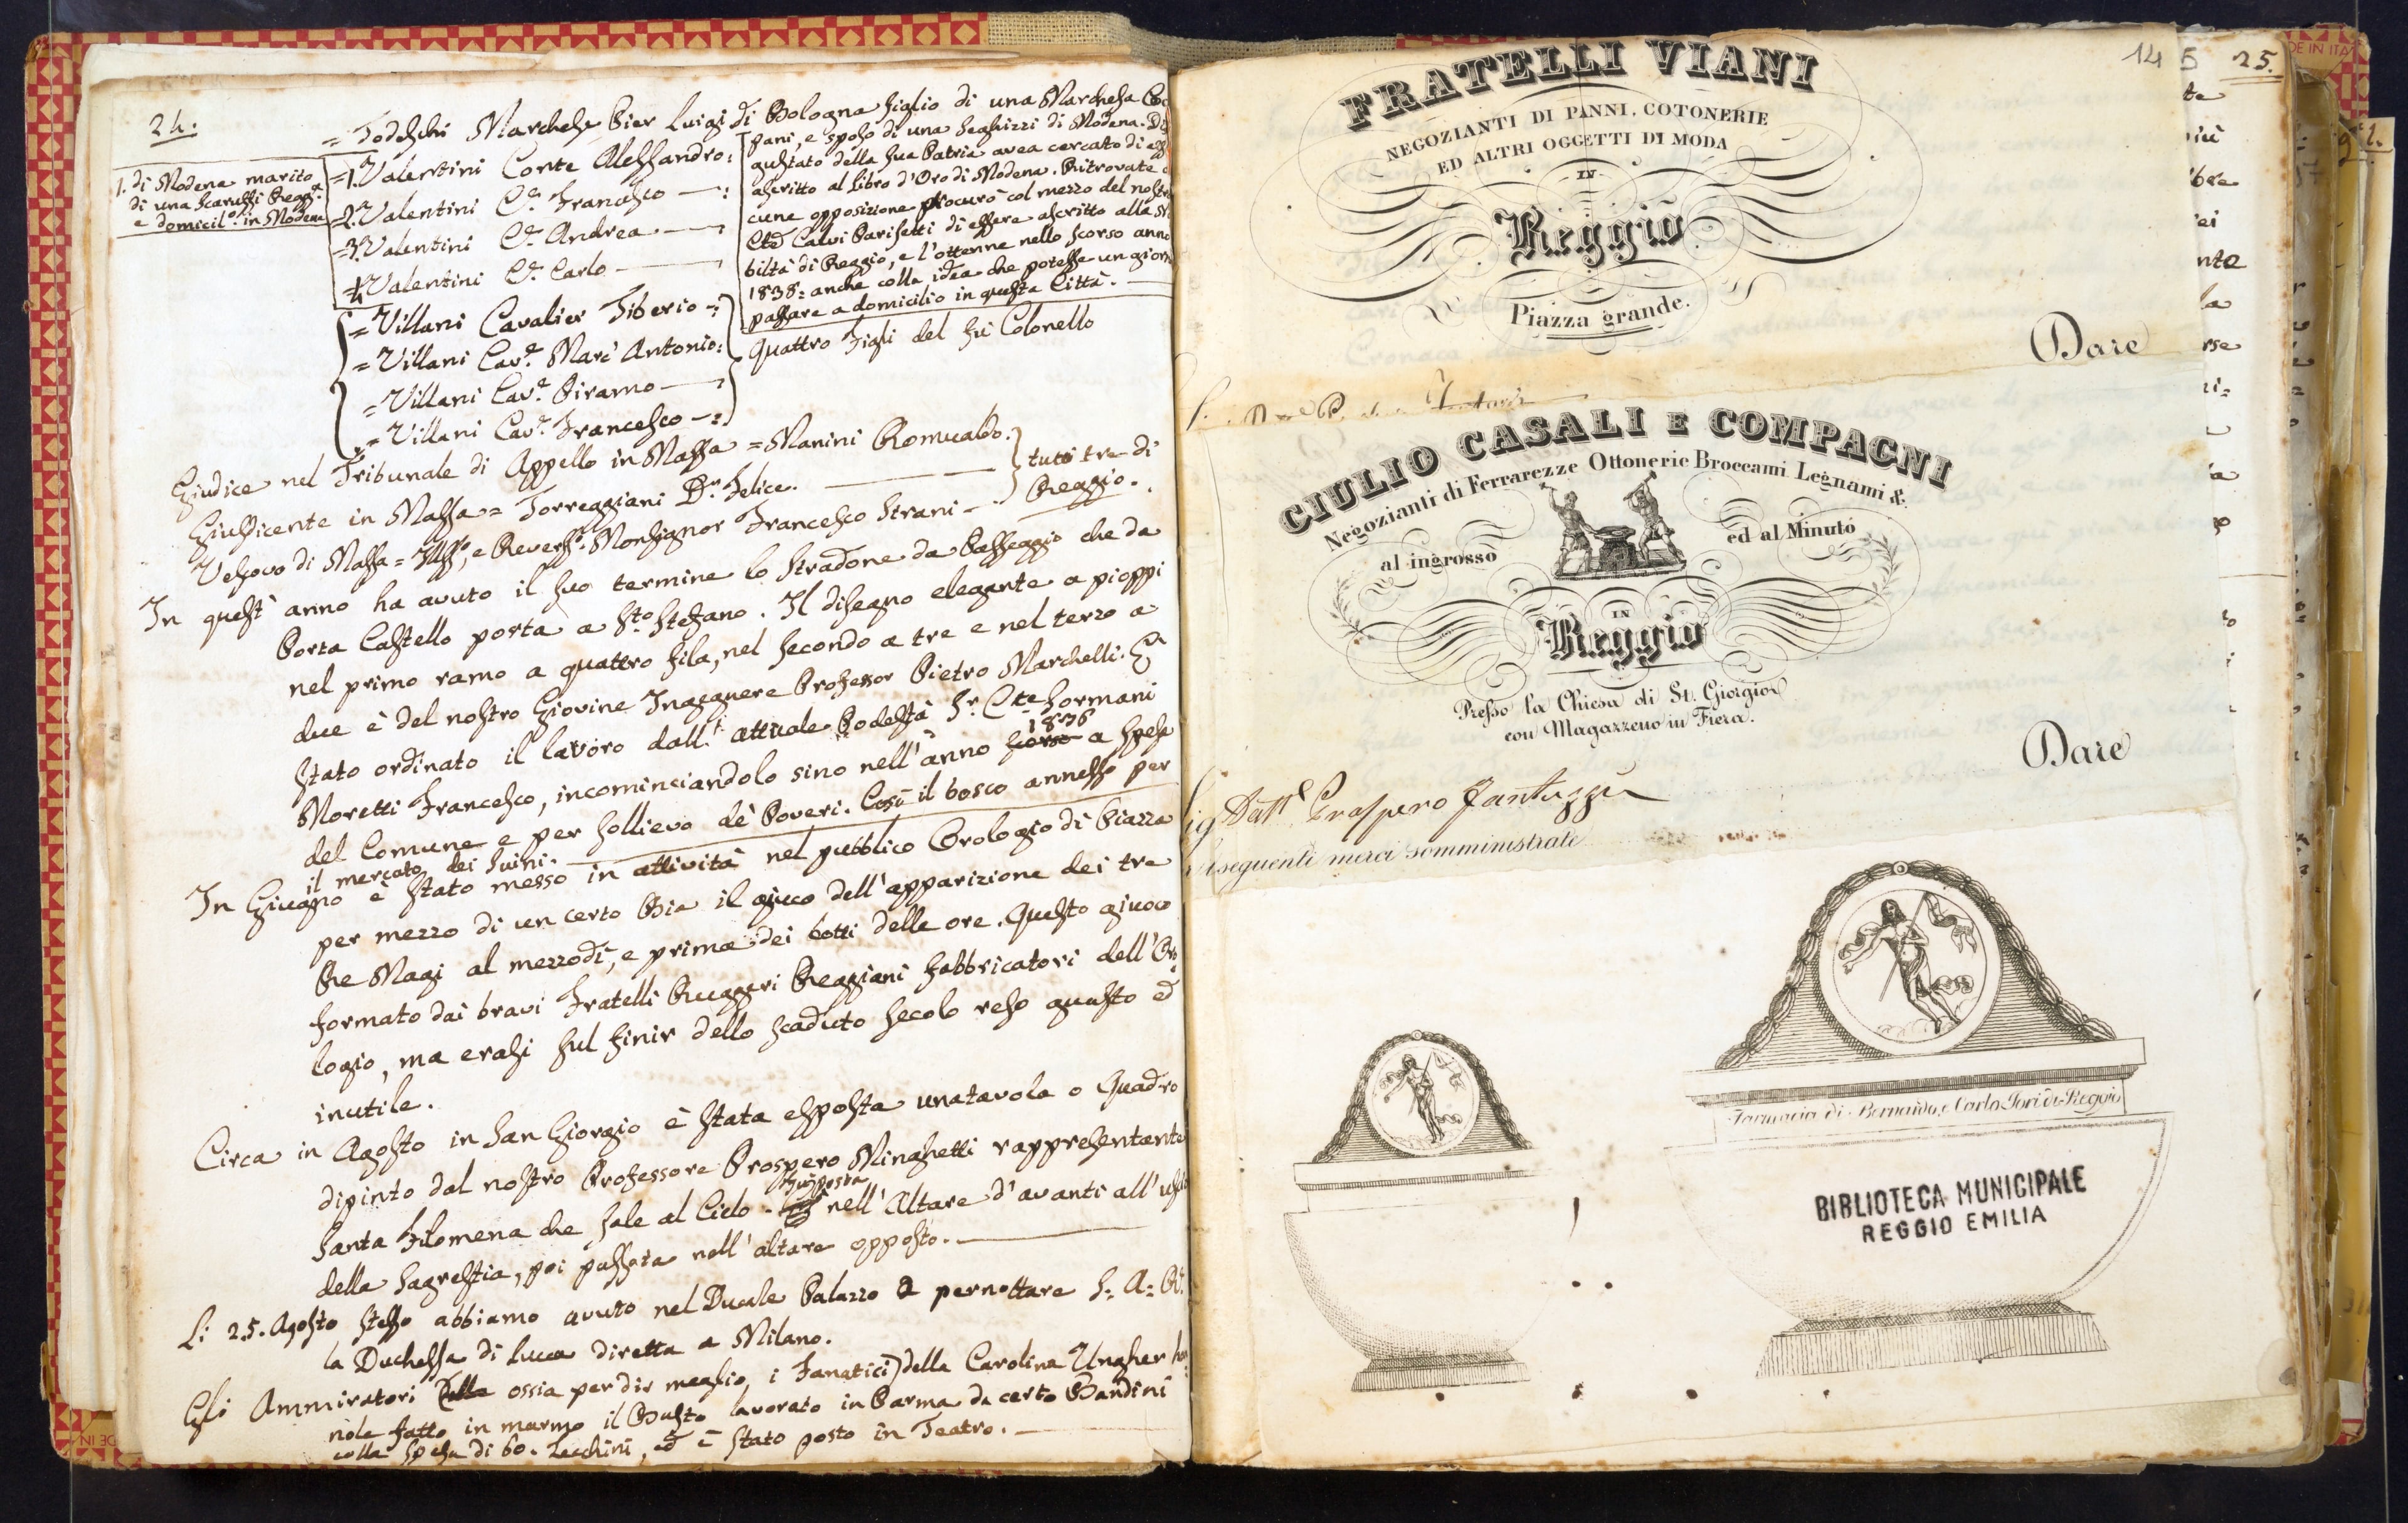 24.
= Todeschi Marchese Pier Luigi di Bologna figlio di una Marchesa
1. di Modena marito
di una Scaruffi Regg.a
e domicil.o in Modena
=1. Valentini Conte Alessandro:
=2. Valentini C.e Francesco —:
=3. Valentini C.e Andrea —
=4. Valentini C.e Carlo —
fani, e sposo di una Seghizzi di Modena.
gustato della sua Patria avea cercato di
ascritto al Libro d'Oro di Modena. Ritrovate
cune opposizione procurò col mezzo del nostro
Cte Calvi Parisetti di essere ascritto alla
biltà di Reggio, e l'ottenne nello scorso anno
1838: anche colla idea che potesse un giorno
passare a domicilio in questa Città.
= Villani Cavalier Tiberio =:
= Villani Cav.e Marc' Antonio:
= Villani Cav.e Piramo —
= Villani Cav.e Francesco —:
Quattro Figli del fù Colonello
Giudice nel Tribunale di Appello in Massa = Manini Romualdo.
Giusdicente in Massa = Torreggiani D.r Felice. —
Vescovo di Massa = Illss.o, e Reverss.o Monsignor Francesco Strani —
tutti tre di
Reggio.
In quest' anno ha avuto il suo termine lo Stradone da Passeggio che da
Porta Castello porta a Sto Stefano. Il disegno elegante a pioppi
nel primo ramo a quattro fila, nel secondo a tre e nel terzo a
due è del nostro Giovine Ingegnere Professor Pietro Marchelli. E'
stato ordinato il lavoro dall' attuale Podestà Sr. Cte Formani
Moretti Francesco, incominciandolo sino nell' anno scorso 1836 a spese
del Comune e per sollievo dè Poveri. Così il bosco annesso per
il mercato dei Suini.
In Giugno è stato messo in attività nel pubblico Orologio di Piazza
per mezzo di un certo Bia il giuco dell' apparizione dei tre
Re Magi al mezzodì, e prima dei botti delle ore. Questo giuoco
formato dai bravi Fratelli Ruggeri Reggiani fabbricatori dell' Oro
logio, ma erasi sul finir dello scaduto secolo reso guasto ed
inutile.
Circa in Agosto in San Giorgio è stata esposta una tavola o Quadro
dipinto dal nostro Professore Prospero Minghetti rappresentante
Santa Filomena che sale al Cielo. Fù posta nell' Altare d'avanti all'
della Sagrestia, poi passata nell' altare opposto. —
Li 25. Agosto stesso abbiamo avuto nel Ducale Palazzo a pernottare S: A: R:
la Duchessa di Lucca diretta a Milano.
Gli Ammiratori della ossia per dir meglio i Fanatici) della Carolina Ungher
fatto in marmo il Busto lavorato in Parma da certo Bandini
colla spesa di 60. Zecchini, ed è stato posto in Teatro. —
145
25.
FRATELLI VIANI
NEGOZIANTI DI PANNI, COTONERIE
ED ALTRI OGGETTI DI MODA
IN
Reggio
Piazza grande.
Dare
GIULIO CASALI E COMPAGNI
Negozianti di Ferrarezze Ottonerie Broccami Legnami &.
al ingrosso
ed al Minuto
IN
Reggio
Presso la Chiesa di St. Giorgio
con Magazzeno in Fiera.
Dare
Sig Dattl Prospero Fantuzzi
seguenti merci somministrate
Farmacia di Bernardo, e Carlo Jori di Reggio
BIBLIOTECA MUNICIPALE
REGGIO EMILIA